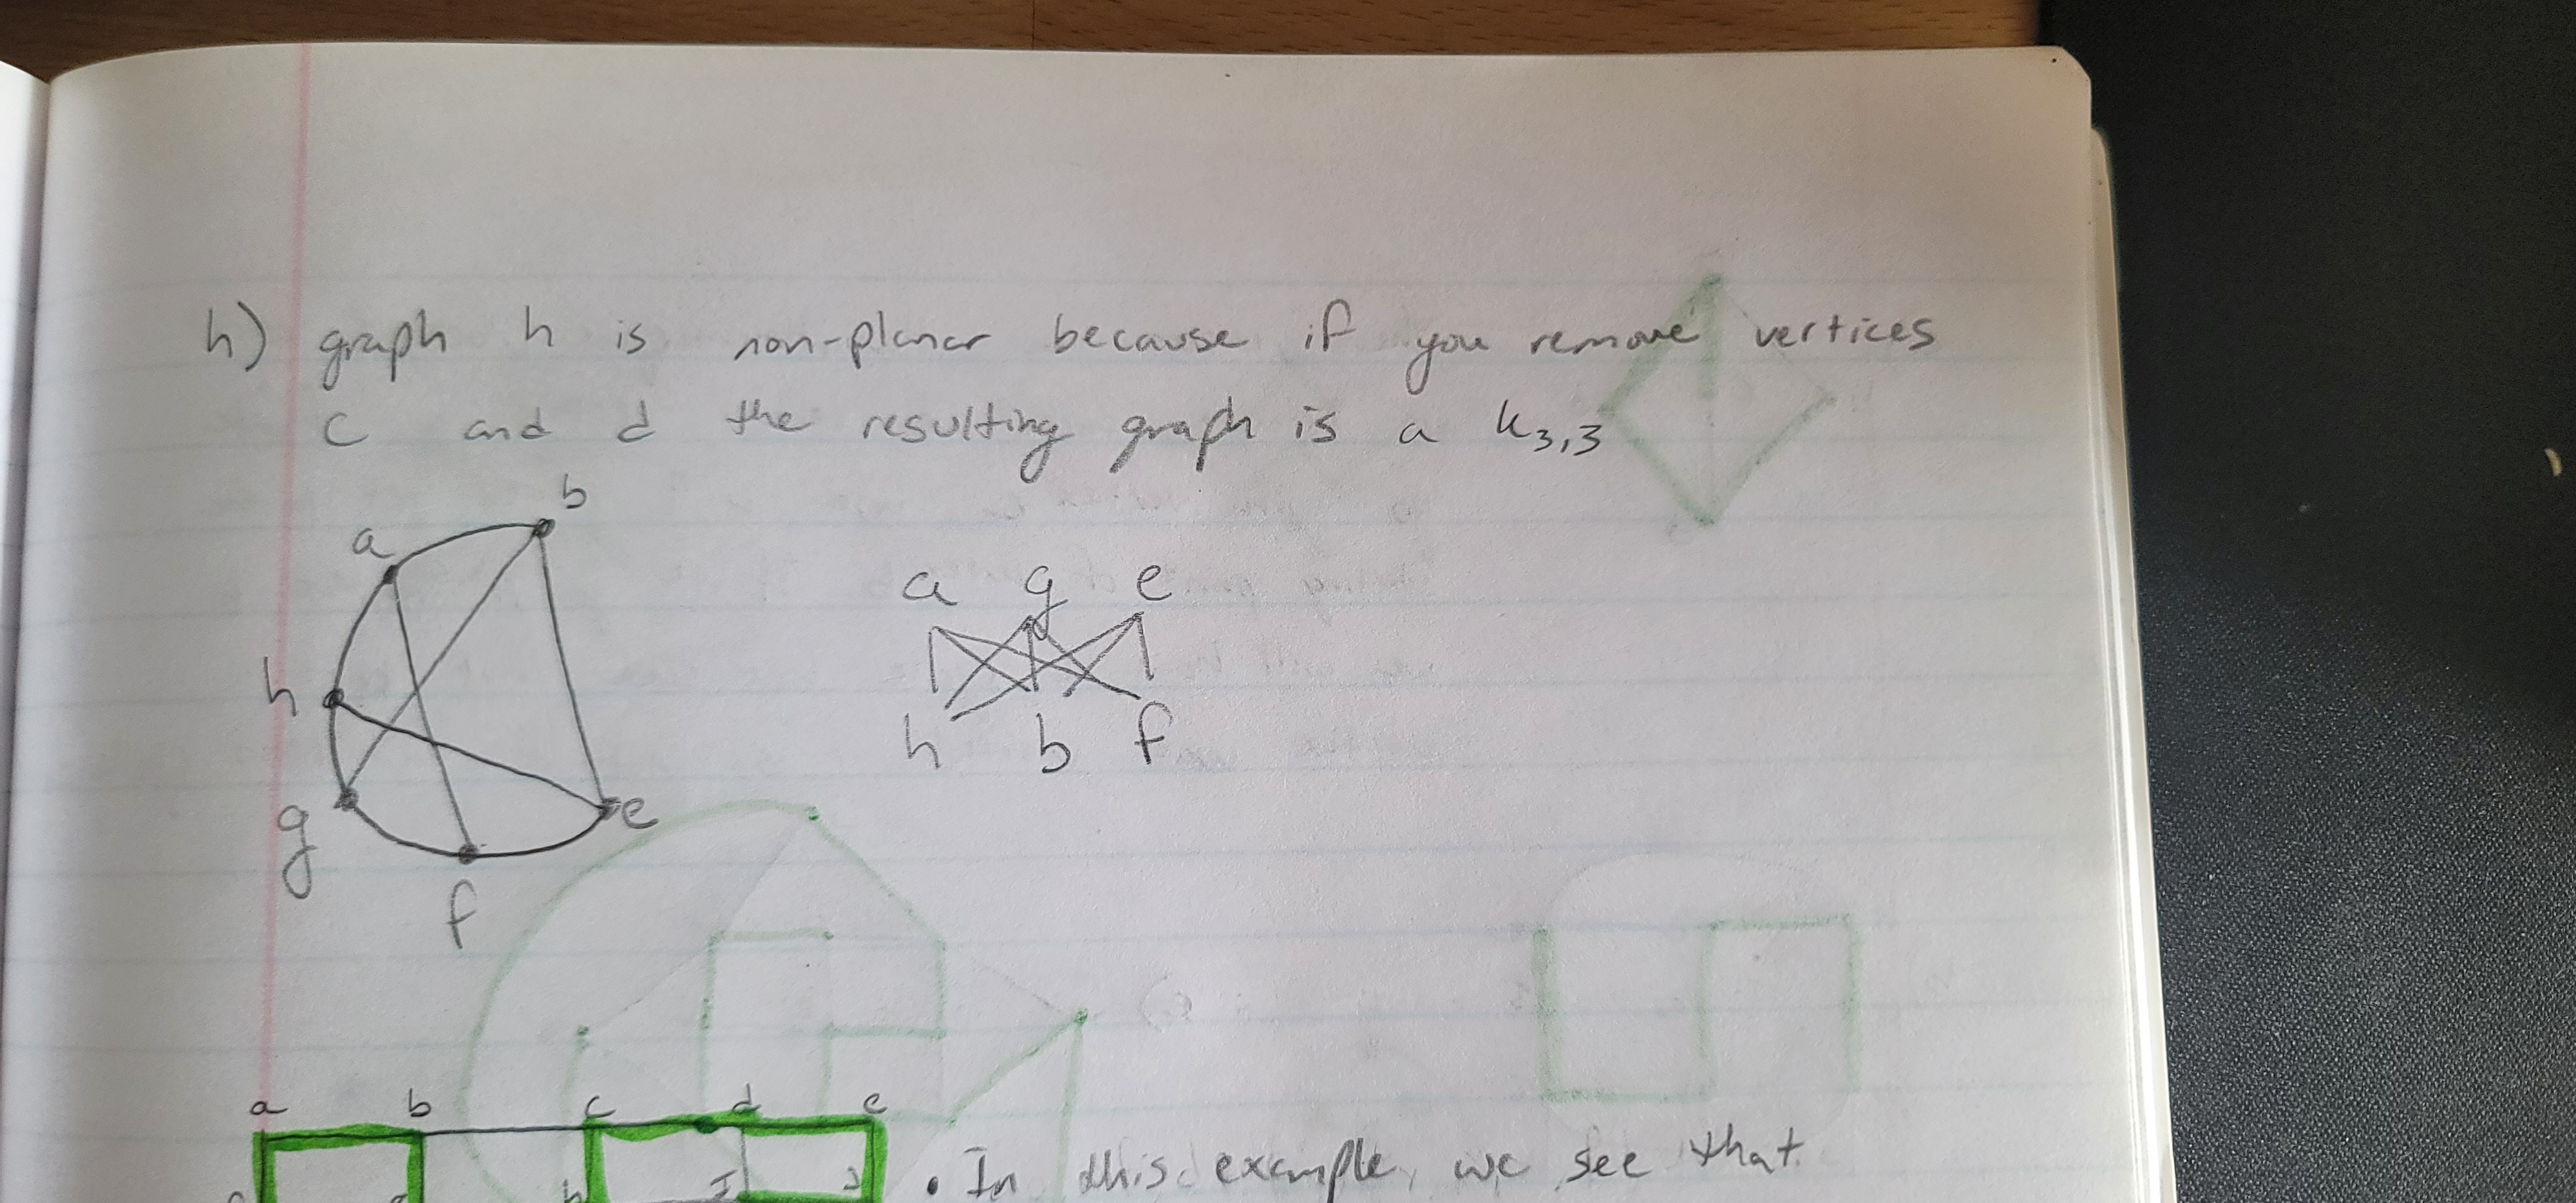 h) graph h is non-planar because if you remove vertices
c and d the resulting graph is a K3,3
a
b
h
g
f
e
a g e
h b f
a b c d e
h I J
• In this example, we see that